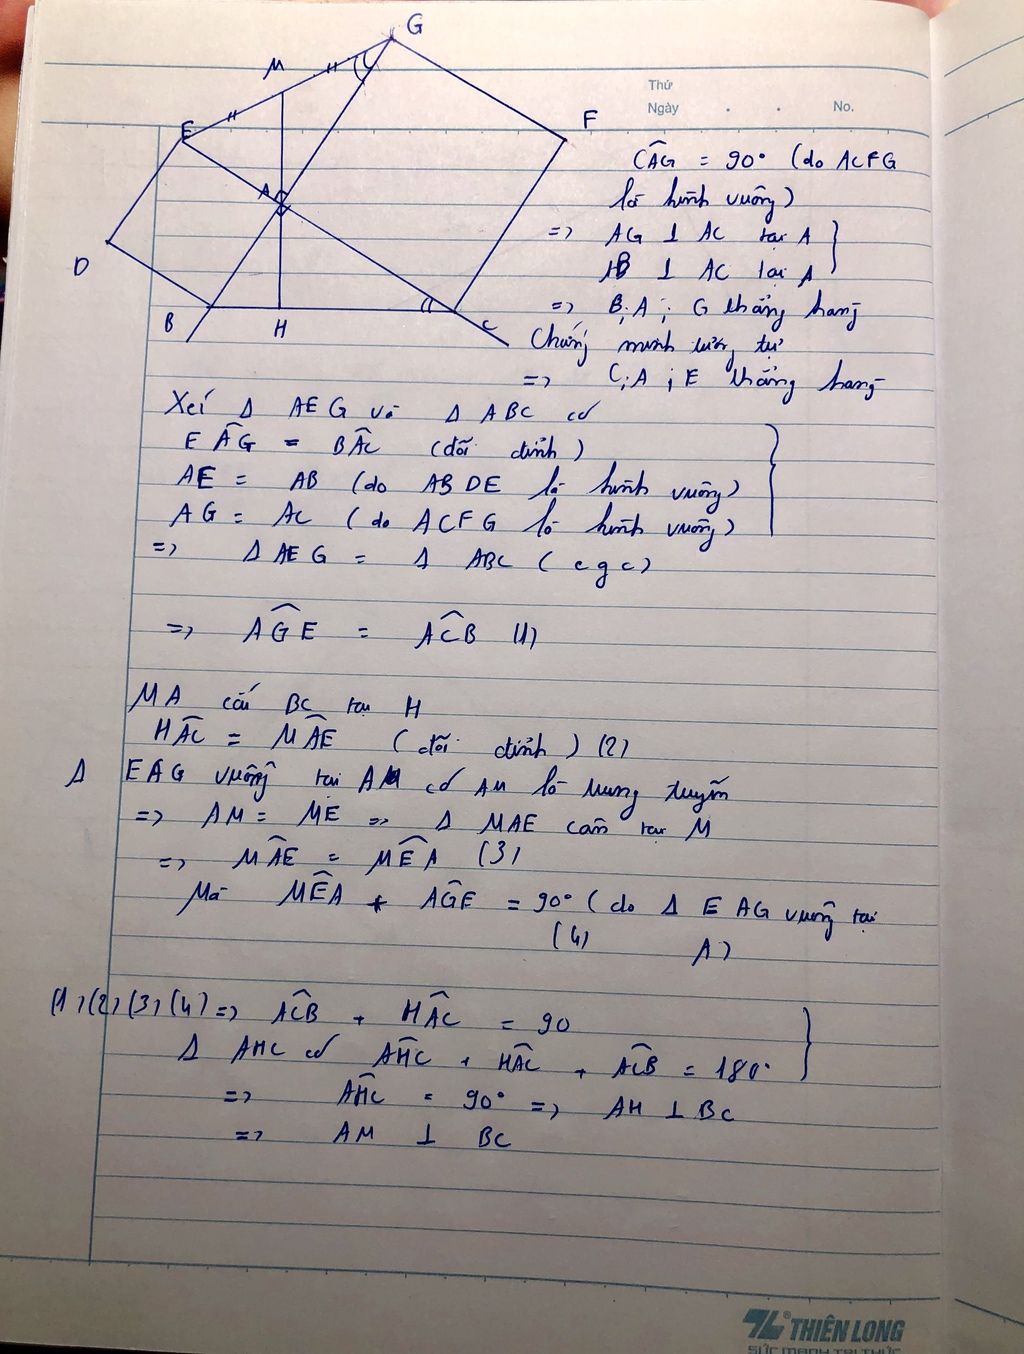 G
M
F
E
A
D
B
H
C
Thứ
Ngày . . No.
CÂG = 90° (do ACFG
là hình vuông)
=> AG ⊥ AC tại A }
AB ⊥ AC tại A
=> B; A ; G thẳng hàng
Chứng minh tương tự
=> C; A ; E thẳng hàng
Xét Δ AEG và Δ ABC có
EÂG = BÂC (đối đỉnh) }
AE = AB (do ABDE là hình vuông)
AG = AC (do ACFG là hình vuông)
=> Δ AEG = Δ ABC (c g c)
=> AĜE = AĈB (1)
MA cắt BC tại H
HÂC = MÂE (đối đỉnh) (2)
Δ EAG vuông tại A có AM là trung tuyến
=> AM = ME => Δ MAE cân tại M
=> MÂE = MÊA (3)
Mà MÊA + AĜE = 90° (do Δ EAG vuông tại
(4) A)
(1) (2) (3) (4) => AĈB + HÂC = 90 }
Δ AHC có AĤC + HÂC + AĈB = 180°
=> AĤC = 90° => AH ⊥ BC
=> AM ⊥ BC
TL® THIÊN LONG
SỨC MẠNH TRI THỨC